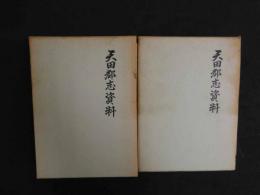 天田郡志資料
天田郡志資料